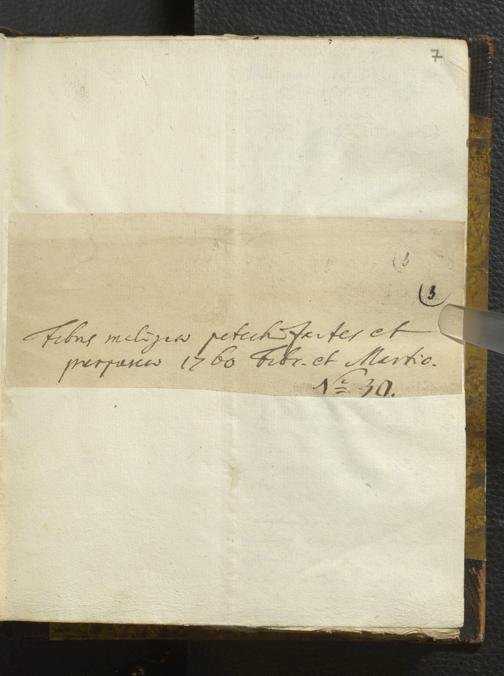 7
(3
Febris maligna petechi fartes et
purpurea 1760 Febr. et Martio.
No 30.